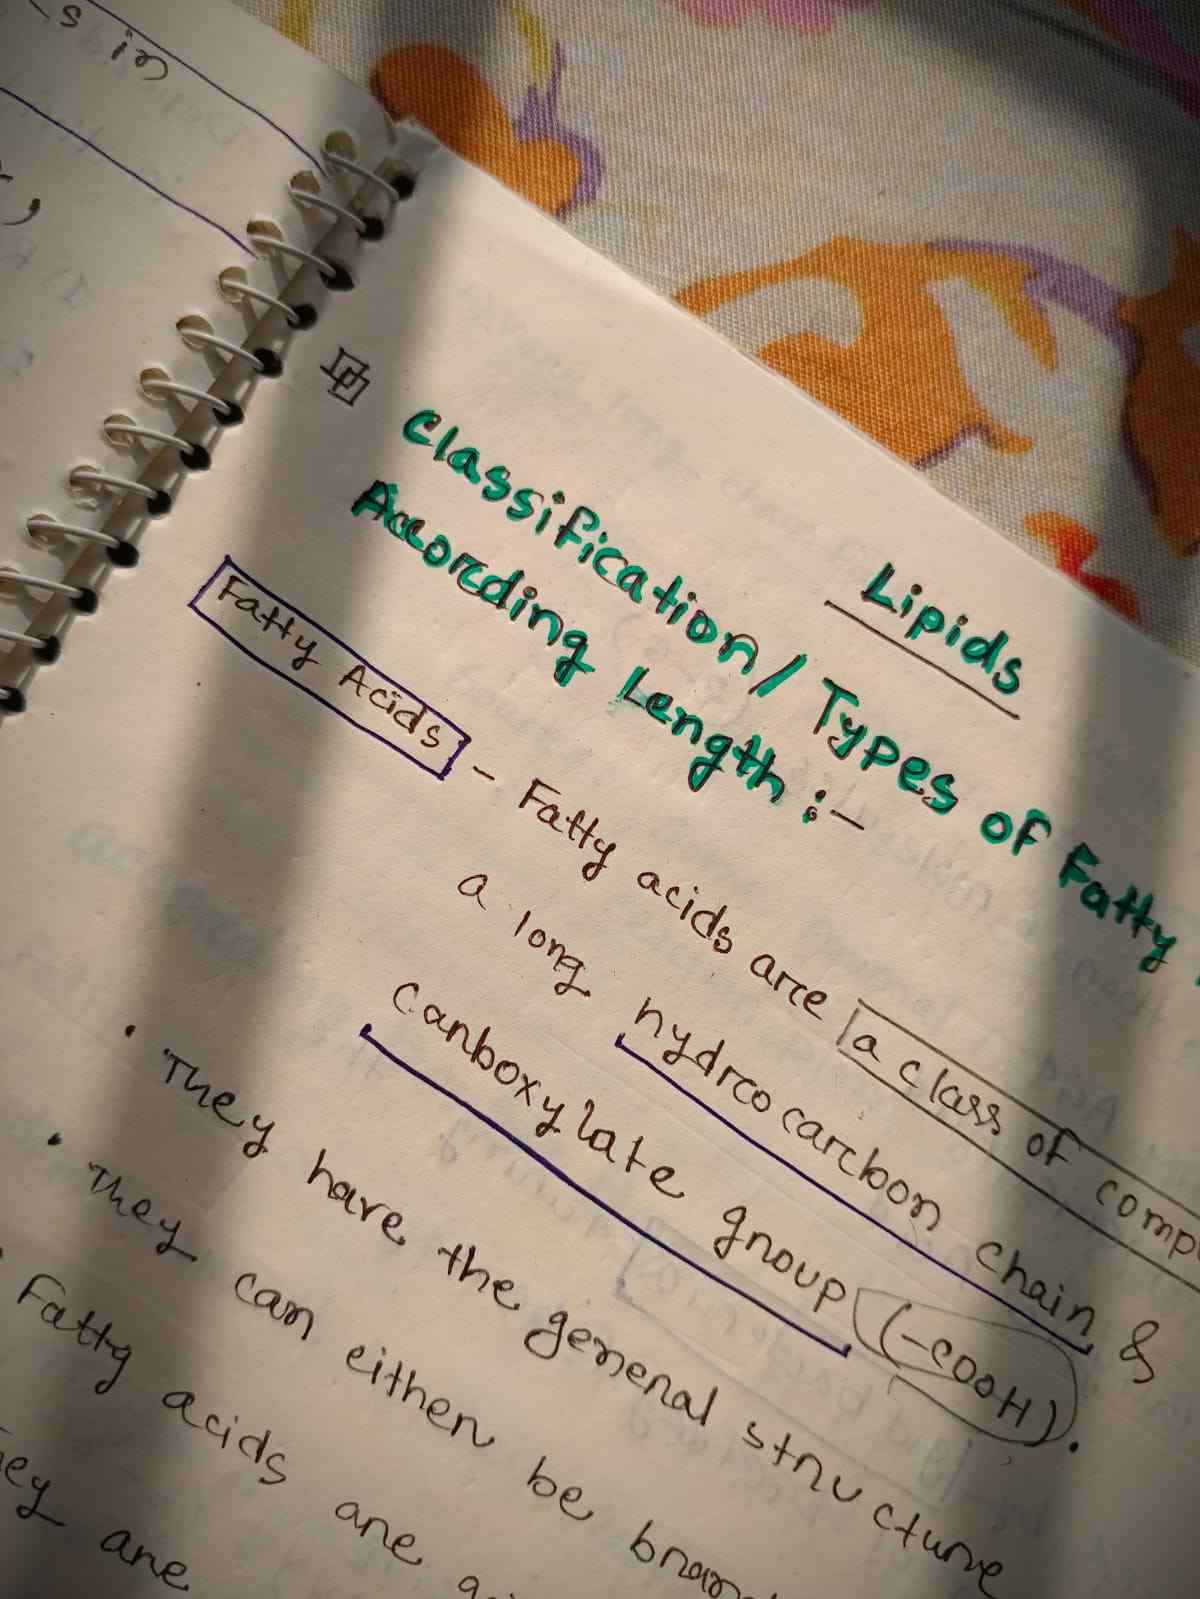 Lipids
Classification/Types of Fatty
According Length :-
Fatty Acids - Fatty acids are a class of comp
a long hydrocarbon chain &
carboxylate group (-COOH).
• They have the general structure
• They can either be
Fatty acids are
are
in